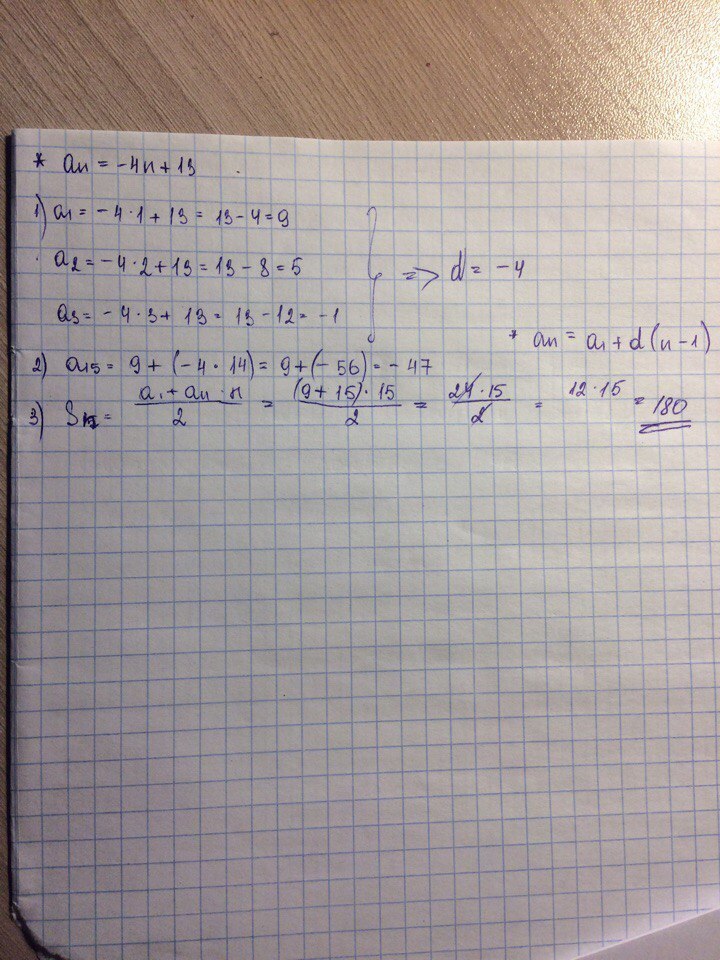 * an = -4n+13
1) a1 = -4·1+13 = 13-4=9
a2 = -4·2+13 = 13-8=5
a3 = -4·3+13 = 13-12 = -1
=> d = -4
* an = a1 + d(n-1)
2) a15 = 9+(-4·14) = 9+(-56) = -47
3) S15 = (a1 + an · n)/2 = ((9+15)·15)/2 = (24·15)/2 = 12·15 = 180